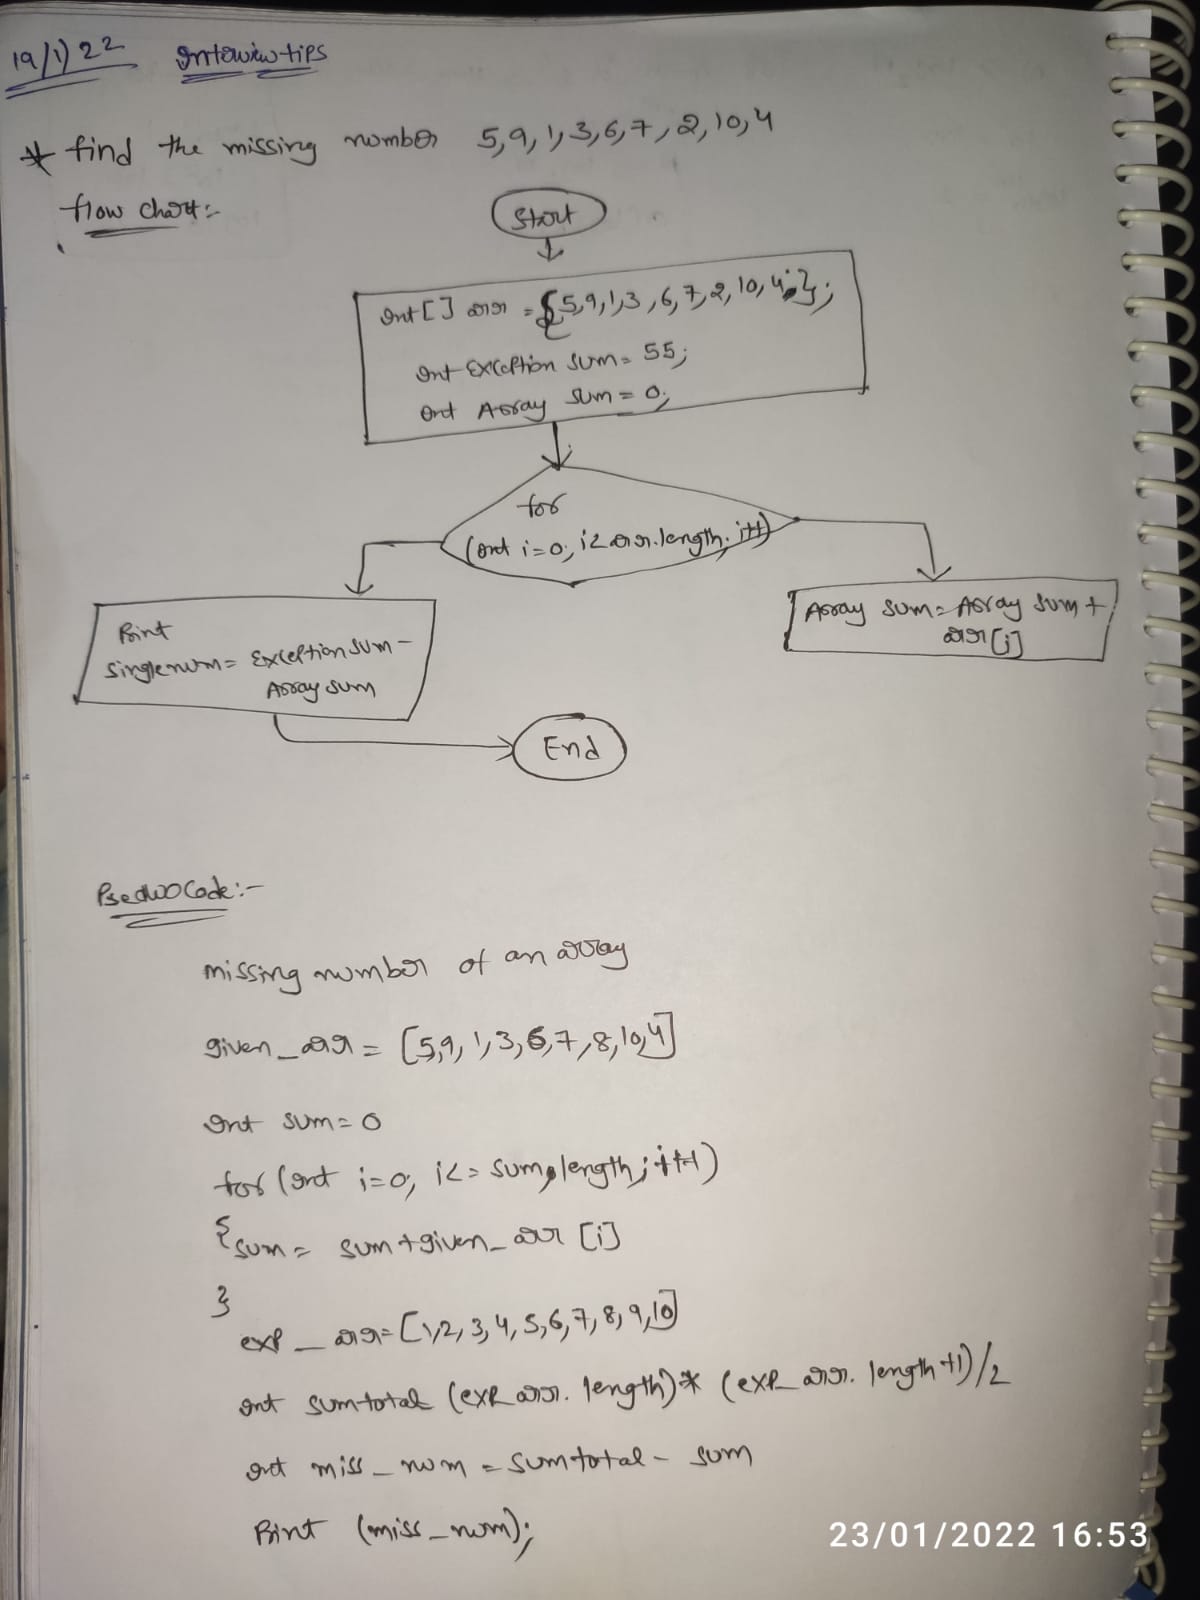 19/1/22 Interview tips
* find the missing number 5,9,1,3,6,7,2,10,4
flow chart:-
Start
Int[] arr = {5,9,1,3,6,7,2,10,4};
Int Exception sum = 55;
Int Array sum = 0;
for
(int i=0; i<arr.length; i++)
Print
singlenum = Exception sum -
Array sum
Array sum = Array sum +
arr[i]
End
PseduoCode:-
missing number of an array
given_arr = [5,9,1,3,6,7,8,10,4]
Int sum = 0
for (int i=0; i<= sum.length; i++)
{ sum = sum + given_arr [i]
}
exp_arr = [1,2,3,4,5,6,7,8,9,10]
int sumtotal (exp_arr. length) * (exp_arr. length +1)/2
int miss_num = sumtotal - sum
Print (miss_num);
23/01/2022 16:53